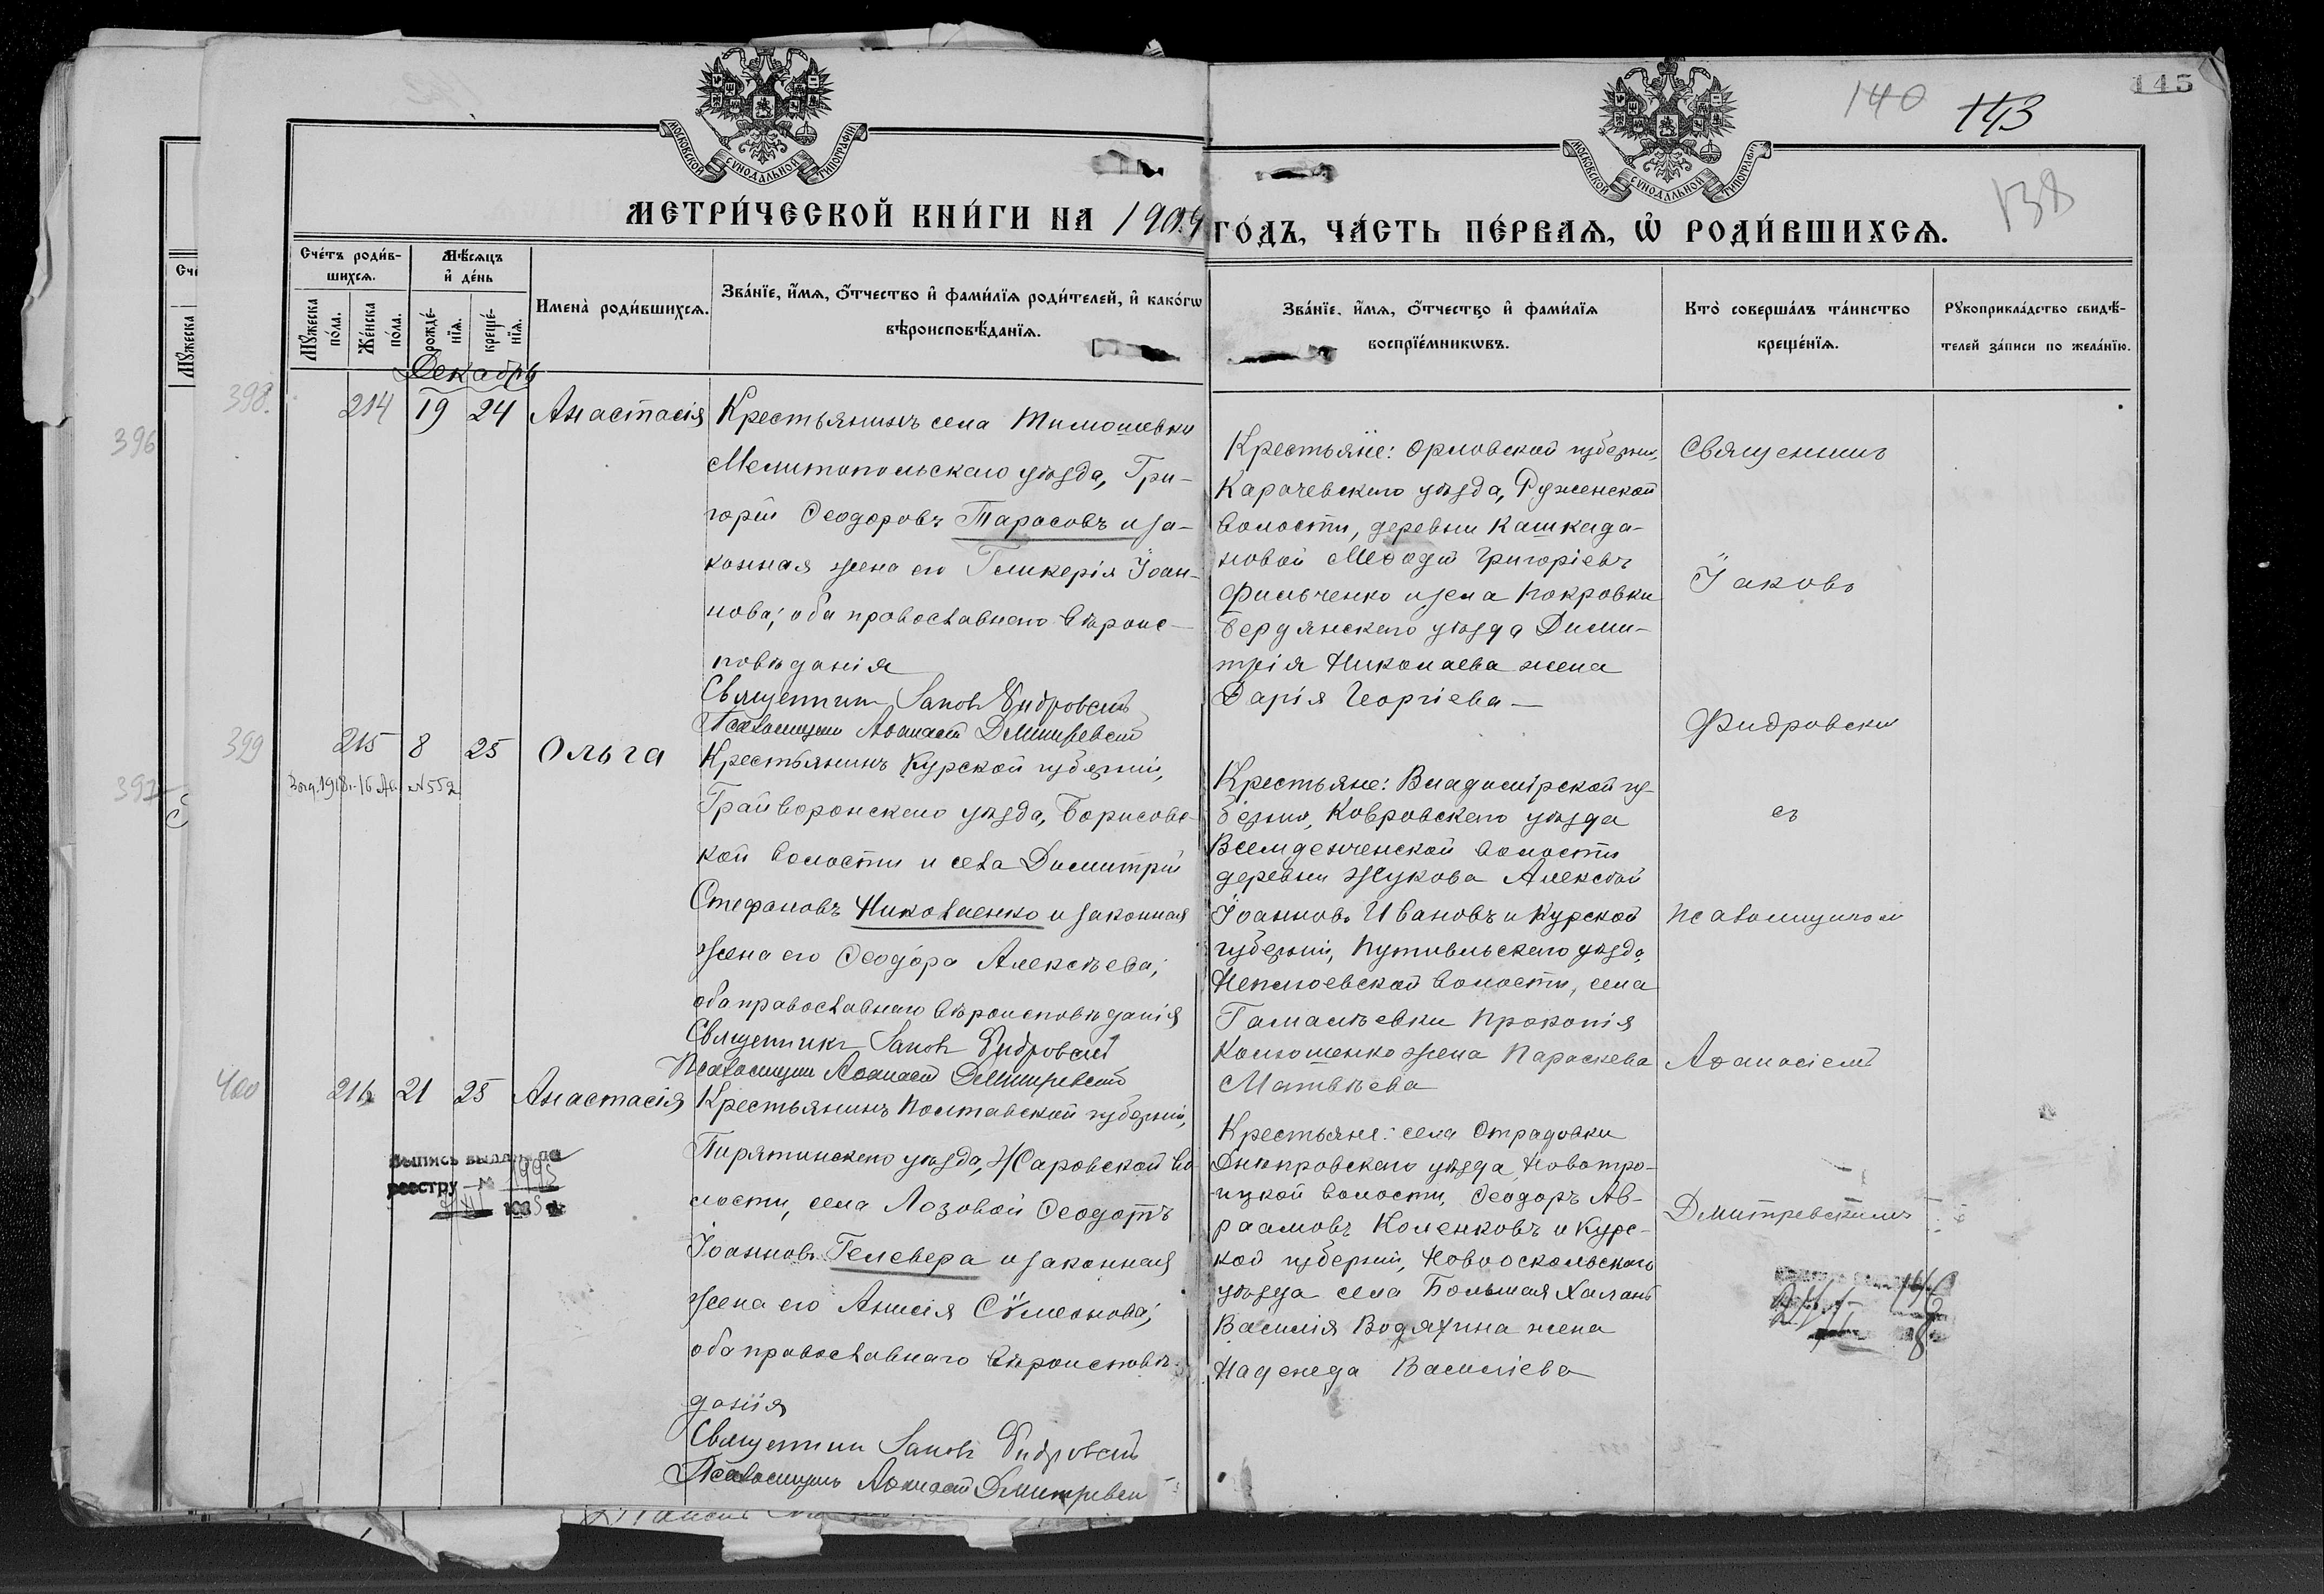 140
143
145
138
МОСКОВСКОЙ СУНОДАЛЬНОЙ ТИПОГРАФІИ
МОСКОВСКОЙ СУНОДАЛЬНОЙ ТИПОГРАФІИ
МЕТРИ́ЧЕСКОЙ КНИ́ГИ НА 1909
ГО́ДЪ, ЧА́СТЬ ПЕ́РВАѦ, Ѡ҆ РОДИ́ВШИХСѦ.
Сче́тъ роди́в-
шихсѧ.
Мѣ́сѧцъ
и҆ де́нь
Мꙋ́жеска
по́ла.
Же́нска
по́ла.
рожде́-
нїѧ.
креще́-
нїѧ.
Имена̀ роди́вшихсѧ.
Зва́нїе, и҆́мѧ, о҆́тчество и҆ фами́лїѧ роди́телей, и҆ како́гѡ
вѣроисповѣ́данїѧ.
Зва́нїе, и҆́мѧ, о҆́тчество и҆ фами́лїѧ
воспрїе́мникѡвъ.
Кто̀ соверша́лъ та́инство
креще́нїѧ.
Рꙋкоприкла́дство свидѣ́-
телей за́писи по жела́нїю.
Декабрь
398.
214 19 24 Анастасія
Крестьянинъ села Тимошевки
Мелитопольскаго уѣзда, Гри-
горій Ѳеодоровъ Тарасовъ и за-
конная жена его Гликерія Іоан-
нова; оба православнаго вѣроис-
повѣданія
Священникъ Іаковъ Фидровскій
Псаломщикъ Аѳанасій Дмитревскій
Крестьяне: Орловской губерніи,
Карачевскаго уѣзда, Руженской
волости, деревни Кашкада-
мовой Меѳодій Григоріевъ
Фильченко и села Покровки
Бердянскаго уѣзда Дими-
трія Николаева жена
Дарія Георгіева
Священникъ
Іаковъ
Фидровскій
съ
псаломщикомъ
Аѳанасіемъ
Дмитревскимъ
396
399
215 8 25 Ольга
397
№ 552
Крестьянинъ Курской губерніи,
Грайворонскаго уѣзда, Борисовс-
кой волости и села Димитрій
Стефановъ Николаенко и законная
жена его Ѳеодора Алексѣева;
оба православнаго вѣроисповѣданія
Священникъ Іаковъ Фидровскій
Псаломщикъ Аѳанасій Дмитревскій
Крестьяне: Владимірской гу-
берніи, Ковровскаго уѣзда
волости
деревни Жукова Алексѣй
Іоанновъ Ивановъ и Курской
губерніи, Путивльскаго уѣзда,
волости, села
Гамалѣевки Прокопія
Колошенко жена Параскева
Матвѣева
400
216 21 25 Анастасія
Выпись выдана по
реестру № 1995
Крестьянинъ Полтавской губерніи,
Пирятинскаго уѣзда, Жаровской во-
лости, села Лозовой Ѳеодотъ
Іоанновъ Гелевера и законная
жена его Анисія Сѵмеонова;
оба православнаго вѣроисповѣ-
данія
Священникъ Іаковъ Фидровскій
Псаломщикъ Аѳанасій Дмитревскій
Крестьяне: села Отрадовки
Днѣпровскаго уѣзда, Новотро-
ицкой волости, Ѳеодоръ Ав-
раамовъ Коленковъ и Курс-
кой губерніи, Новооскольскаго
уѣзда села Большая Халань
Василія Водяхина жена
Надежда Василіева